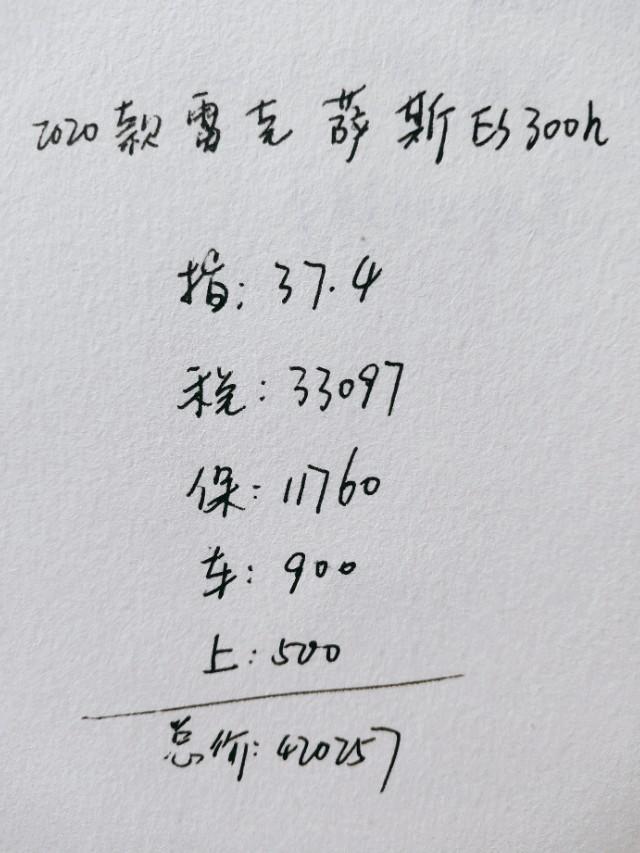 2020款雷克萨斯ES300h
指:37.4
税:33097
保:11760
车:900
上:500
总价:420257